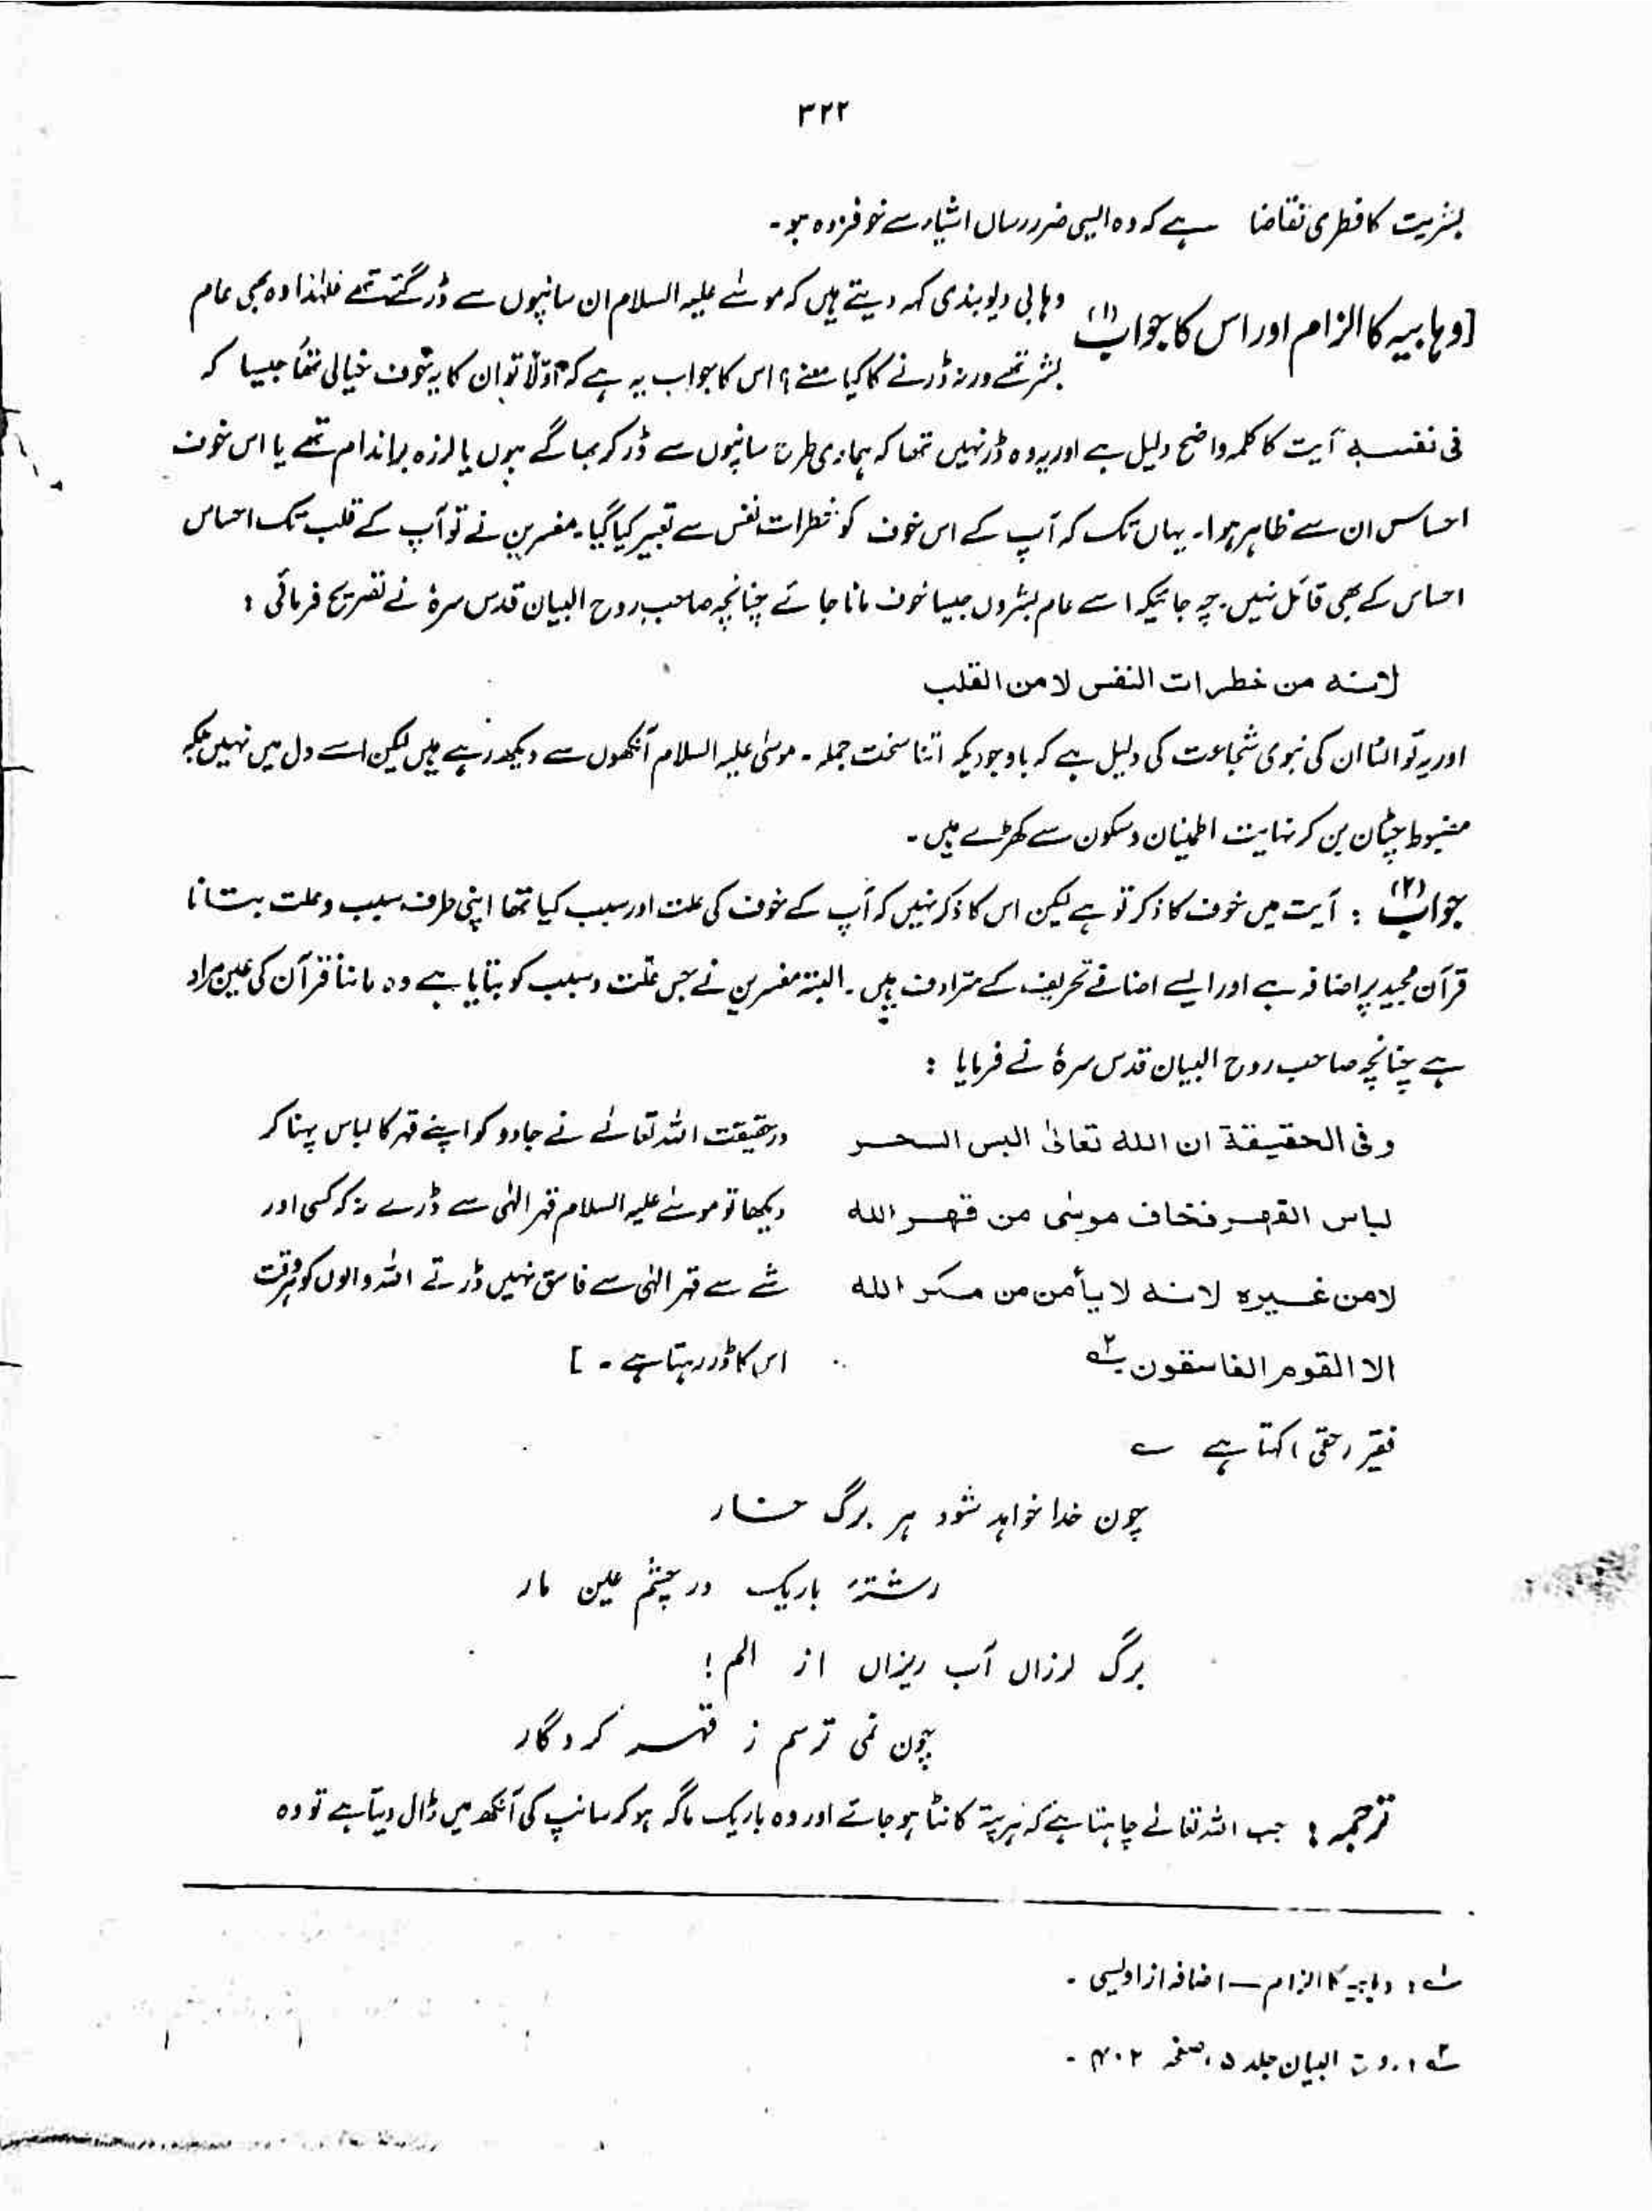 ۳۲۲
بشریت کا فطری تقاضا ہے کہ وہ ایسی ضرر رساں اشیاء سے خوفزدہ ہو۔
[وہابیہ کا الزام اور اس کا جواب (۱) وہابی دیوبندی کہہ دیتے ہیں کہ موسیٰ علیہ السلام ان سانپوں سے ڈر گئے تھے فلہٰذا وہ بھی عام
بشر تھے ورنہ ڈرنے کا کیا معنے؟ اس کا جواب یہ ہے کہ اولاً تو ان کا یہ خوف خیالی تھا جیسا کہ
فی نفسہ آیت کا کلمہ واضح دلیل ہے اور یہ وہ ڈر نہیں تھا کہ ہماری طرح سانپوں سے ڈر کر بھاگے ہوں یا لرزہ براندام تھے یا اس خوف
احساس ان سے ظاہر ہوا۔ یہاں تک کہ آپ کے اس خوف کو خطرات نفس سے تعبیر کیا گیا۔ مفسرین نے تو آپ کے قلب تک احساس
احساس کے بھی قائل نہیں۔ چہ جائیکہ اسے عام بشروں جیسا خوف مانا جائے چنانچہ صاحب روح البیان قدس سرہٗ نے تصریح فرمائی :
لانه من خطرات النفس لا من القلب
اور یہ تو الٹا ان کی نبوی شجاعت کی دلیل ہے کہ باوجودیکہ اتنا سخت حملہ۔ موسیٰ علیہ السلام آنکھوں سے دیکھ رہے ہیں لیکن اسے دل میں نہیں بلکہ
مضبوط چٹان بن کر نہایت اطمینان و سکون سے کھڑے ہیں۔
جواب (۲) : آیت میں خوف کا ذکر تو ہے لیکن اس کا ذکر نہیں کہ آپ کے خوف کی علت اور سبب کیا تھا اپنی طرف سبب و علت بتانا
قرآن مجید پر اضافہ ہے اور ایسے اضافے تحریف کے مترادف ہیں۔ البتہ مفسرین نے جس علت و سبب کو بتایا ہے وہ ماننا قرآن کی عین مراد
ہے چنانچہ صاحب روح البیان قدس سرہٗ نے فرمایا :
و فی الحقیقة ان الله تعالیٰ البس السحر
لباس القهر فخاف موسٰی من قهر الله
لا من غیره لانه لا یأمن من مکر الله
الا القوم الفاسقون ۲؎
درحقیقت اللہ تعالےٰ نے جادو کو اپنے قہر کا لباس پہنا کر
دیکھا تو موسےٰ علیہ السلام قہر الٰہی سے ڈرے نہ کہ کسی اور
شے سے قہر الٰہی سے فاسق نہیں ڈرتے اللہ والوں کو ہر وقت
اس کا ڈر رہتا ہے۔]
فقیر (حقی) کہتا ہے ؎
چون خدا خواہد شود ہر برگ خار
رشتۂ باریک در چشم عین مار
برگ لرزاں آب ریزاں از الم !
چون نمی ترسم ز قہر کردگار
ترجمہ : جب اللہ تعالےٰ چاہتا ہے کہ ہر پتہ کانٹا ہو جائے اور وہ باریک تاگہ ہو کر سانپ کی آنکھ میں ڈال دیتا ہے تو وہ
۱؎ : وہابیہ کا الزام — اضافہ از اویسی ۔
۲؎ : روح البیان جلد ۵ ، صفحہ ۴۰۲ ۔